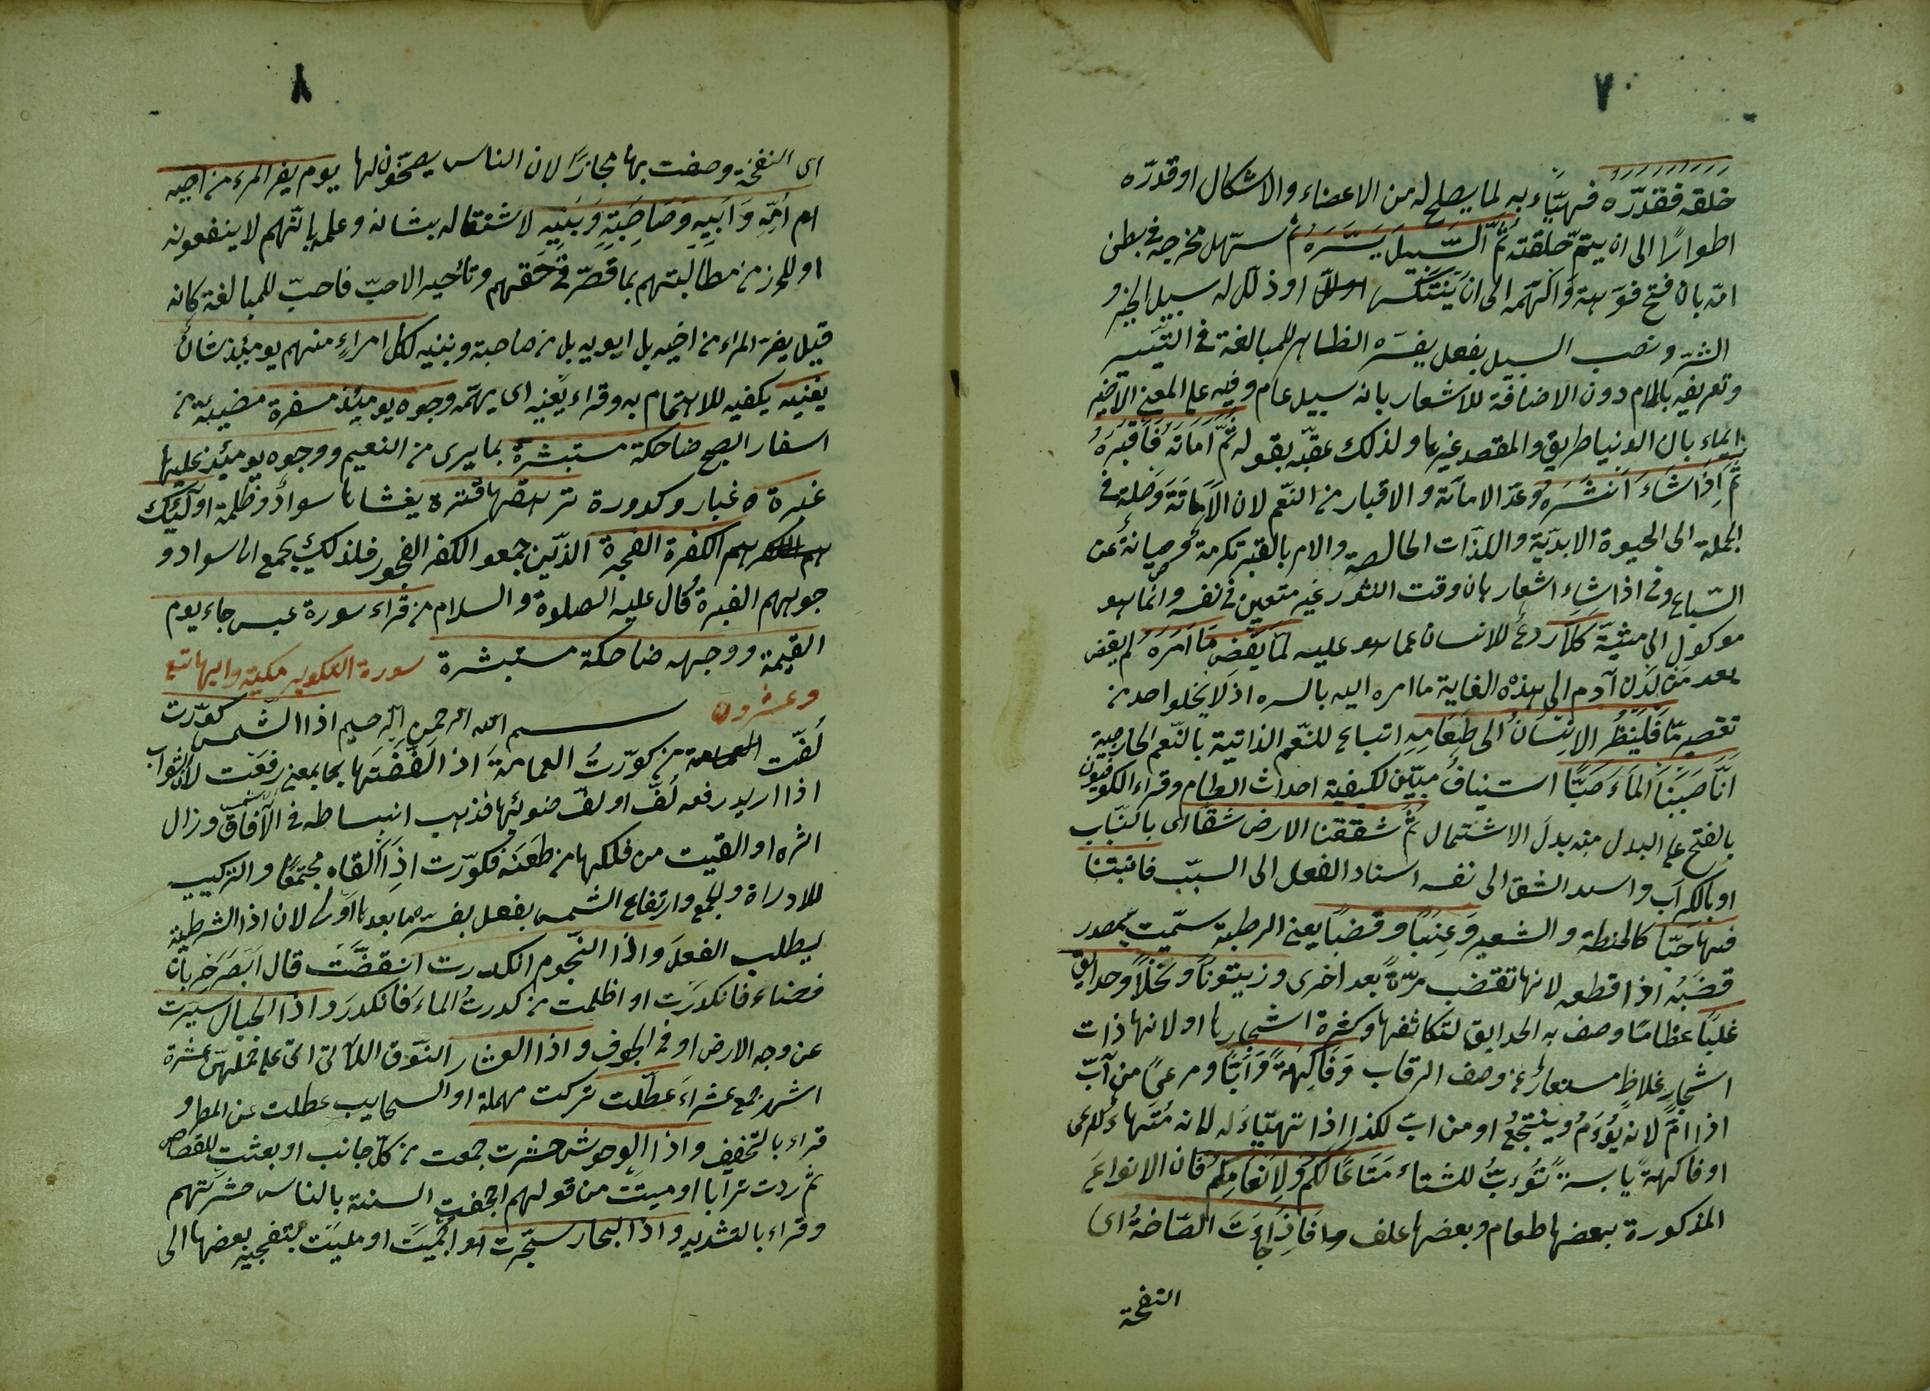 ٧
خلقه فقدّره فهيّاء به لما يصلح له من الاعضاء والاشكال او قدّره
اطوارًا الى ان يتمّ خلقته ثُمَّ السَّبيلَ يَسَّرَهُ ثم سهّل مخرجه فى بطن
امّه بان فتح فوهته وَالْهَمه الى ان يَنْتَكس او ذلّل له سبيل الخير و
الشرّ ونصب السبيل بفعل يفسّره الظاهر للمبالغة فى التيسير
وتعريفه باللام دون الاضافة للاشعار بانه سبيل عام وفيه على المعنى الاخير
ايماء بان الدنيا طريق والمقصد غيرها ولذلك عقبّه بقوله ثُمَّ اَمَاتَهُ فَاَقْبَرَهُ
ثُمَّ اِذَا شَاءَ اَنْشَرَهُ وعدّ الاماتة والاقبار من النّعم لان الاَمَاتَةَ وَصْلة فى
الجملة الى الحيوة الابديّة واللذّات الخالصة والامر بالقبر تكرمة وصيانة عن
السّباع وفى اذا شاء اشعار بان وقت النشور غير متعين فى نفسه وانّما هو
موكول الى مشيّة كلّا ردعٌ للانسان عما هو عليه لَمَّا يَقْضِ مَا اَمَرَهُ لم يقض
بعد من لدن آدم الى هذه الغاية ما امره اليه باسره اذ لا يخلوا احد من
تقصير مّا فَلْيَنْظُرِ الاِنْسَانُ الى طَعَامِهِ اتباع للنعم الذاتية بالنّعم الخارجية
اَنَّا صَبَبْنَا الْمَاءَ صَبًّا استيناف مبيّن لكيفية احداث الطعام وقراء الكوفيّون
بالفتح على البدل منه بدل الاشتمال ثُمَّ شققنا الارض شقًا اى بالنّبات
او بالكراب واسند الشق الى نفسه اسناد الفعل الى السبّب فانبتنا
فيها حَبّا كالحنطة والشعير وَعِنَبًا وقضبًا يعنى الرطبة سمّيت بمصدر
قَضَبَهُ اذا قطعه لانها تقضب مرّةً بعد اخرى وزيتونًا ونَخْلًا وحدايق
غلبًا عظامًا وصف به الحدايق لتكاثفها وكثرة اشجارها او لانها ذات
اشجارٍ غلاظٍ مستعار من وصف الرقاب وَفَاكِهَةً وَاَبًّا ومرعىً من اَبّ
اذا امّ لانه يُؤَمُّ ويُنْتَجعُ او من ابّ لكذا اذا تهيّاءَ له لانه مُتَهاءٌ للرعى
او فاكهةً يابسةً تُؤَبُّ للشتاء مَتَاعًا لَكُمْ وَلِاَنْعَامِكُمْ فان الانواعَ
المذكورة بعضها طعام وبعضها علف فَاِذَا جَاءَتَ الصّاخةُ اى
النفخة
٨
اى النفخة وصفت بها مجازًا لان الناس يصخّون لها يوم يفر المرء من اخيه
امّ اُمِّهِ وَاَبَيِهِ وَصَاحِبَتِهِ وَبَنِيِه لاشتغاله بشانه وعلمه بانّهم لاينفعونه
او للحذر من مطالبتهم بما قصّر فى حقهم وتأخير الاحبّ فاحبّ للمبالغة كانه
قيل يفر المراء من اخيه بل ابويه بل من صاحبة وبنيه لكل امراءٍ منهم يومئذ شانٌ
يغنيه يكفيه للاهتمام به وقراء يَعْنيه اى يهمّه وجوه يومئذ مسفرة مضيئة من
اسفار الصبح ضاحكة مستبشرة بما يرى من النعيم ووجوه يومئذ عليها
غبرة ه غبار وكدورة ترهقها قترة يغشاها سوادٌ وظلمة اولئك
هم الكفرة الفجرة الذّين جمعو الكفر الفجور فلذلك يجمع الى سواد و
جوههم الغبرة قال عليه الصلوة والسلام من قراء سورة عبس جاء يوم
القيمة ووجهه ضاحكة مستبشرة سورة التكوير مكية وايها تسع
وعشرون بسم الله الرحمن الرحيم اذا الشّمس كورّت
لُفّت من كورّتُ العمامة اذ الَفَفْتَها بمعنى رفعت لان الثواب
اذا اريد رفعه لُفَّ او لفّ ضوئها فذهب انبساطه فى الآفاق وزال
اثره او القيت من فلكها من طعنه فكورّت اذا القاه مجتمعًا والتركيب
للادراة والجمع وارتفاع الشمس بفعل يفسّره ما بعدها اولى لان اذا الشرطية
يطلب الفعل واذا النّجوم انكدرت انقضّت قال ابصر خربان
فضاء فانكدرت او اظلمت من كدرتُ الماءَ فَانكدرَ واذا الجبال سيّرت
عن وجه الارض او فى الجوف واذا العشار النّوق اللآتى اتى على حملهنّ عشرة
اشهر جمع عشراءَ عطّلت تركت مهملة او السحايب عطلت عن المطر و
قراء بالتخفيف واذا الوحوش حشرت جمعت من كلّ جانب او بعثت للقصاص
ثم ردت ترابا او ميتت من قولهم اجحفت السنة بالناس حشرتهم
وقراء بالتشديد واذا البحار سجّرت اُحْمِيَت او ملئت بتفجير بعضها الى